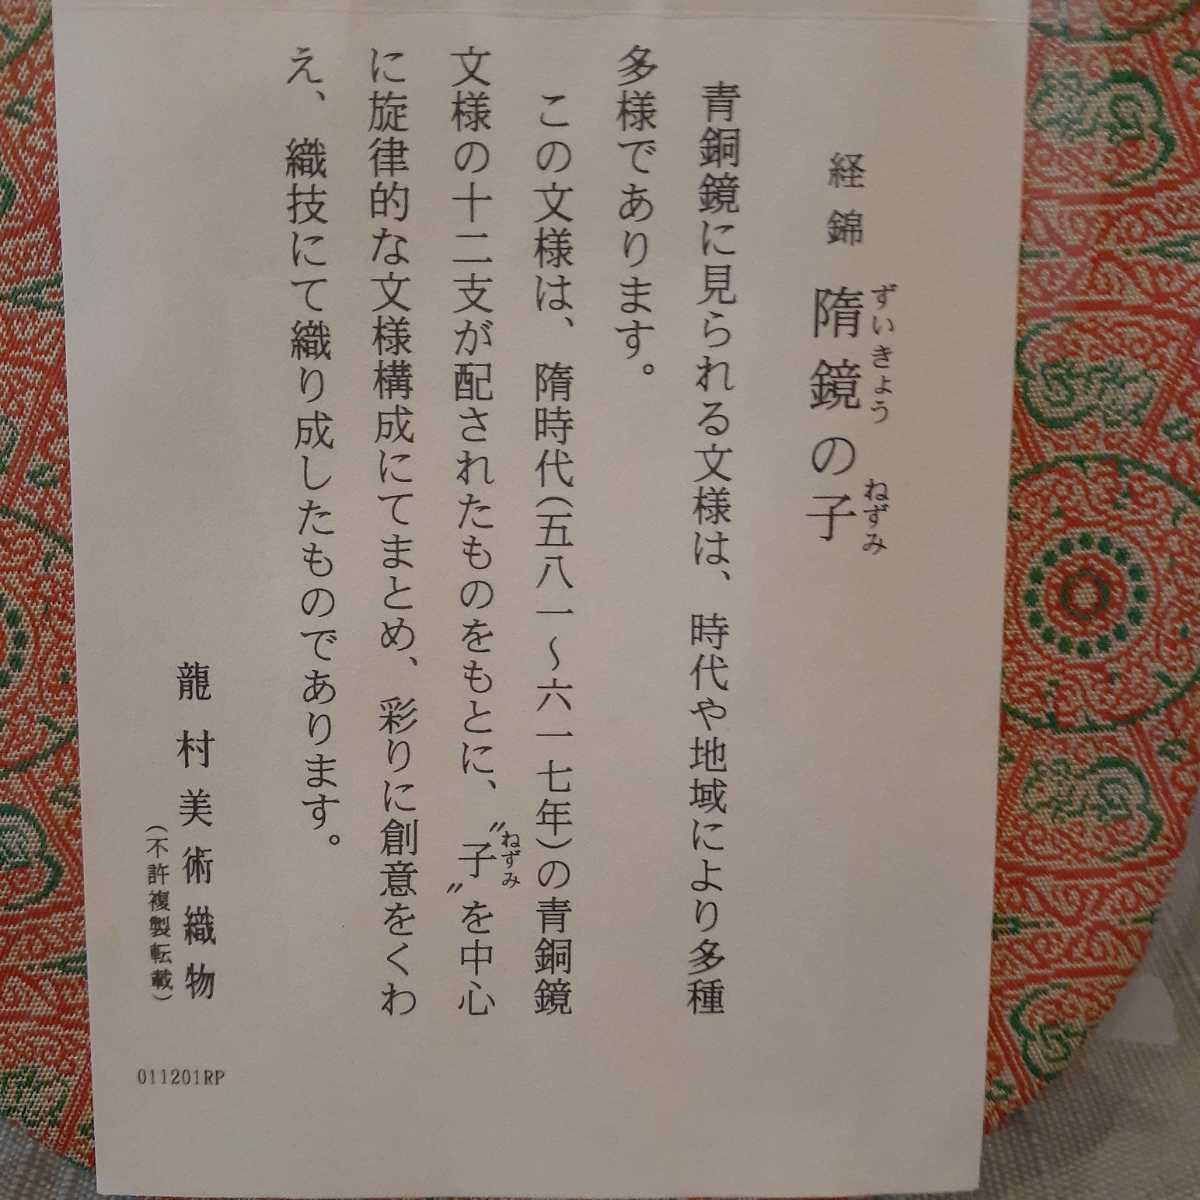 経錦 隋鏡の子
ずいきょう
ねずみ
青銅鏡に見られる文様は、時代や地域により多種
多様であります。
この文様は、隋時代(五八一〜六一七年)の青銅鏡
文様の十二支が配されたものをもとに、〝子〟を中心
ねずみ
に旋律的な文様構成にてまとめ、彩りに創意をくわ
え、織技にて織り成したものであります。
龍村美術織物
(不許複製転載)
011201RP